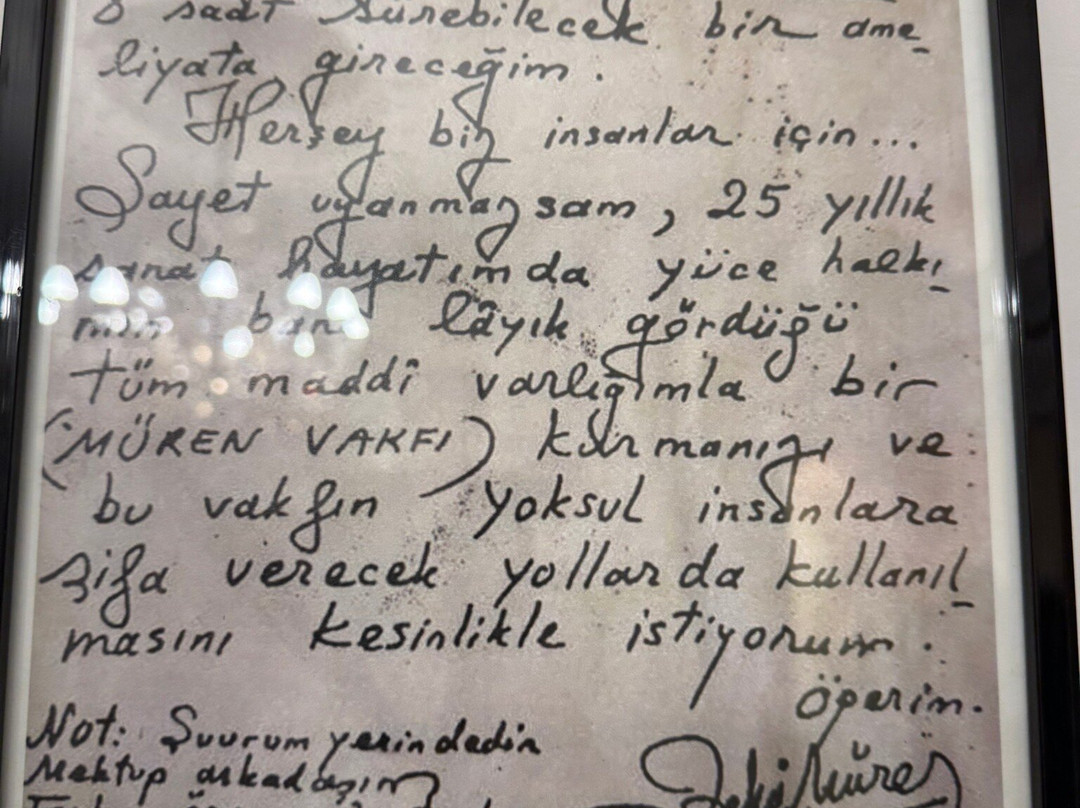 8 saat sürebilecek bir ame_
liyata gireceğim.
Herşey biz insanlar için...
Şayet uyanmazsam, 25 yıllık
sanat hayatımda yüce halkı_
mın bana lâyık gördüğü
tüm maddî varlığımla bir
(MÜREN VAKFI) kurmanızı ve
bu vakfın yoksul insanlara
şifa verecek yollarda kullanıl_
masını kesinlikle istiyorum.
Öperim.
Not: Şuurum yerindedir
Mektup arkadaşım
Zeki Müren